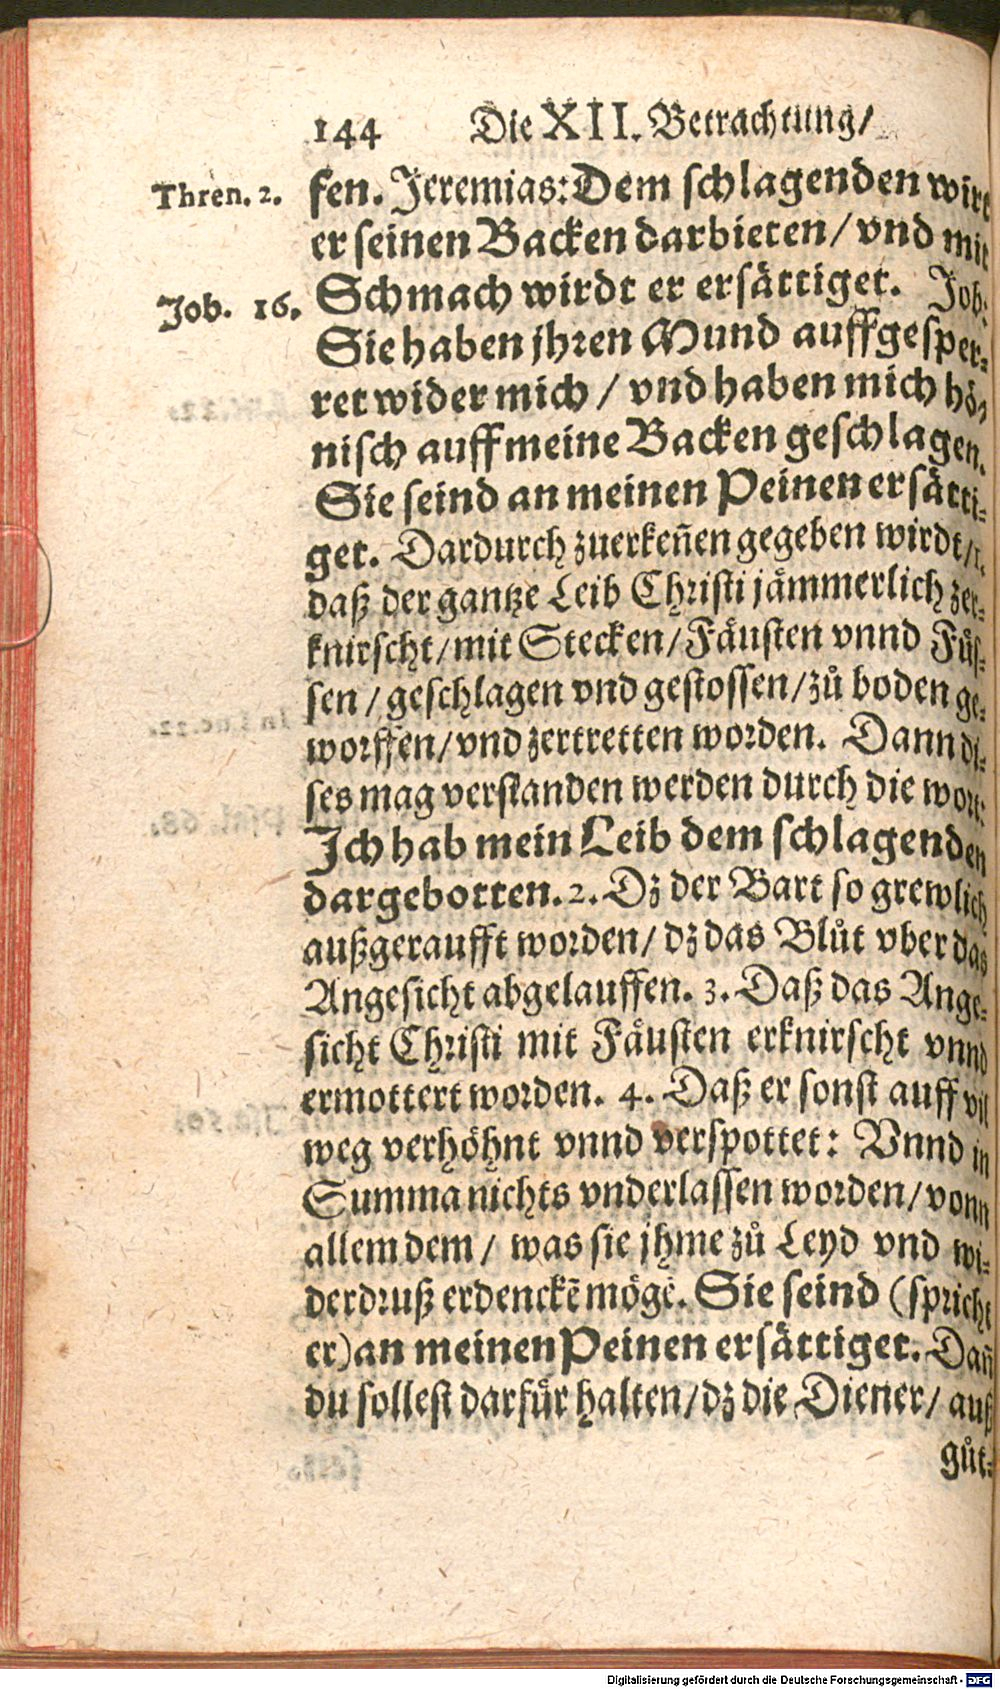 144 Die XII. Betrachtung/
Thren. 2. fen. Jeremias: Dem schlagenden wirt
er seinen Backen darbieten/ vnd mit
Job. 16. Schmach wirdt er ersättiget. Job:
Sie haben jhren Mund auffgesper-
ret wider mich / vnd haben mich hö-
nisch auff meine Backen geschlagen.
Sie seind an meinen Peinen ersätti-
get. Dardurch zuerkeñen gegeben wirdt/1.
daß der gantze Leib Christi jämmerlich zer-
knirscht/ mit Stecken/ Fäusten vnnd Füs-
sen / geschlagen vnd gestossen/ zů boden ge-
worffen/ vnd zertretten worden. Dann di-
ses mag verstanden werden durch die wort:
Ich hab mein Leib dem schlagenden
dargebotten. 2. Dz der Bart so grewlich
außgeraufft worden/ dz das Blůt vber das
Angesicht abgelauffen. 3. Daß das Ange-
sicht Christi mit Fäusten erknirscht vnnd
ermottert worden. 4. Daß er sonst auff vil
weg verhöhnt vnnd verspottet: Vnnd in
Summa nichts vnderlassen worden/ vonn
allem dem / was sie jhme zů Leyd vnd wi-
derdruß erdenckẽ mögẽ. Sie seind (spricht
er) an meinen Peinen ersättiget. Dañ
du sollest darfür halten/ dz die Diener/ auß
gůt-
Digitalisierung gefördert durch die Deutsche Forschungsgemeinschaft - DFG